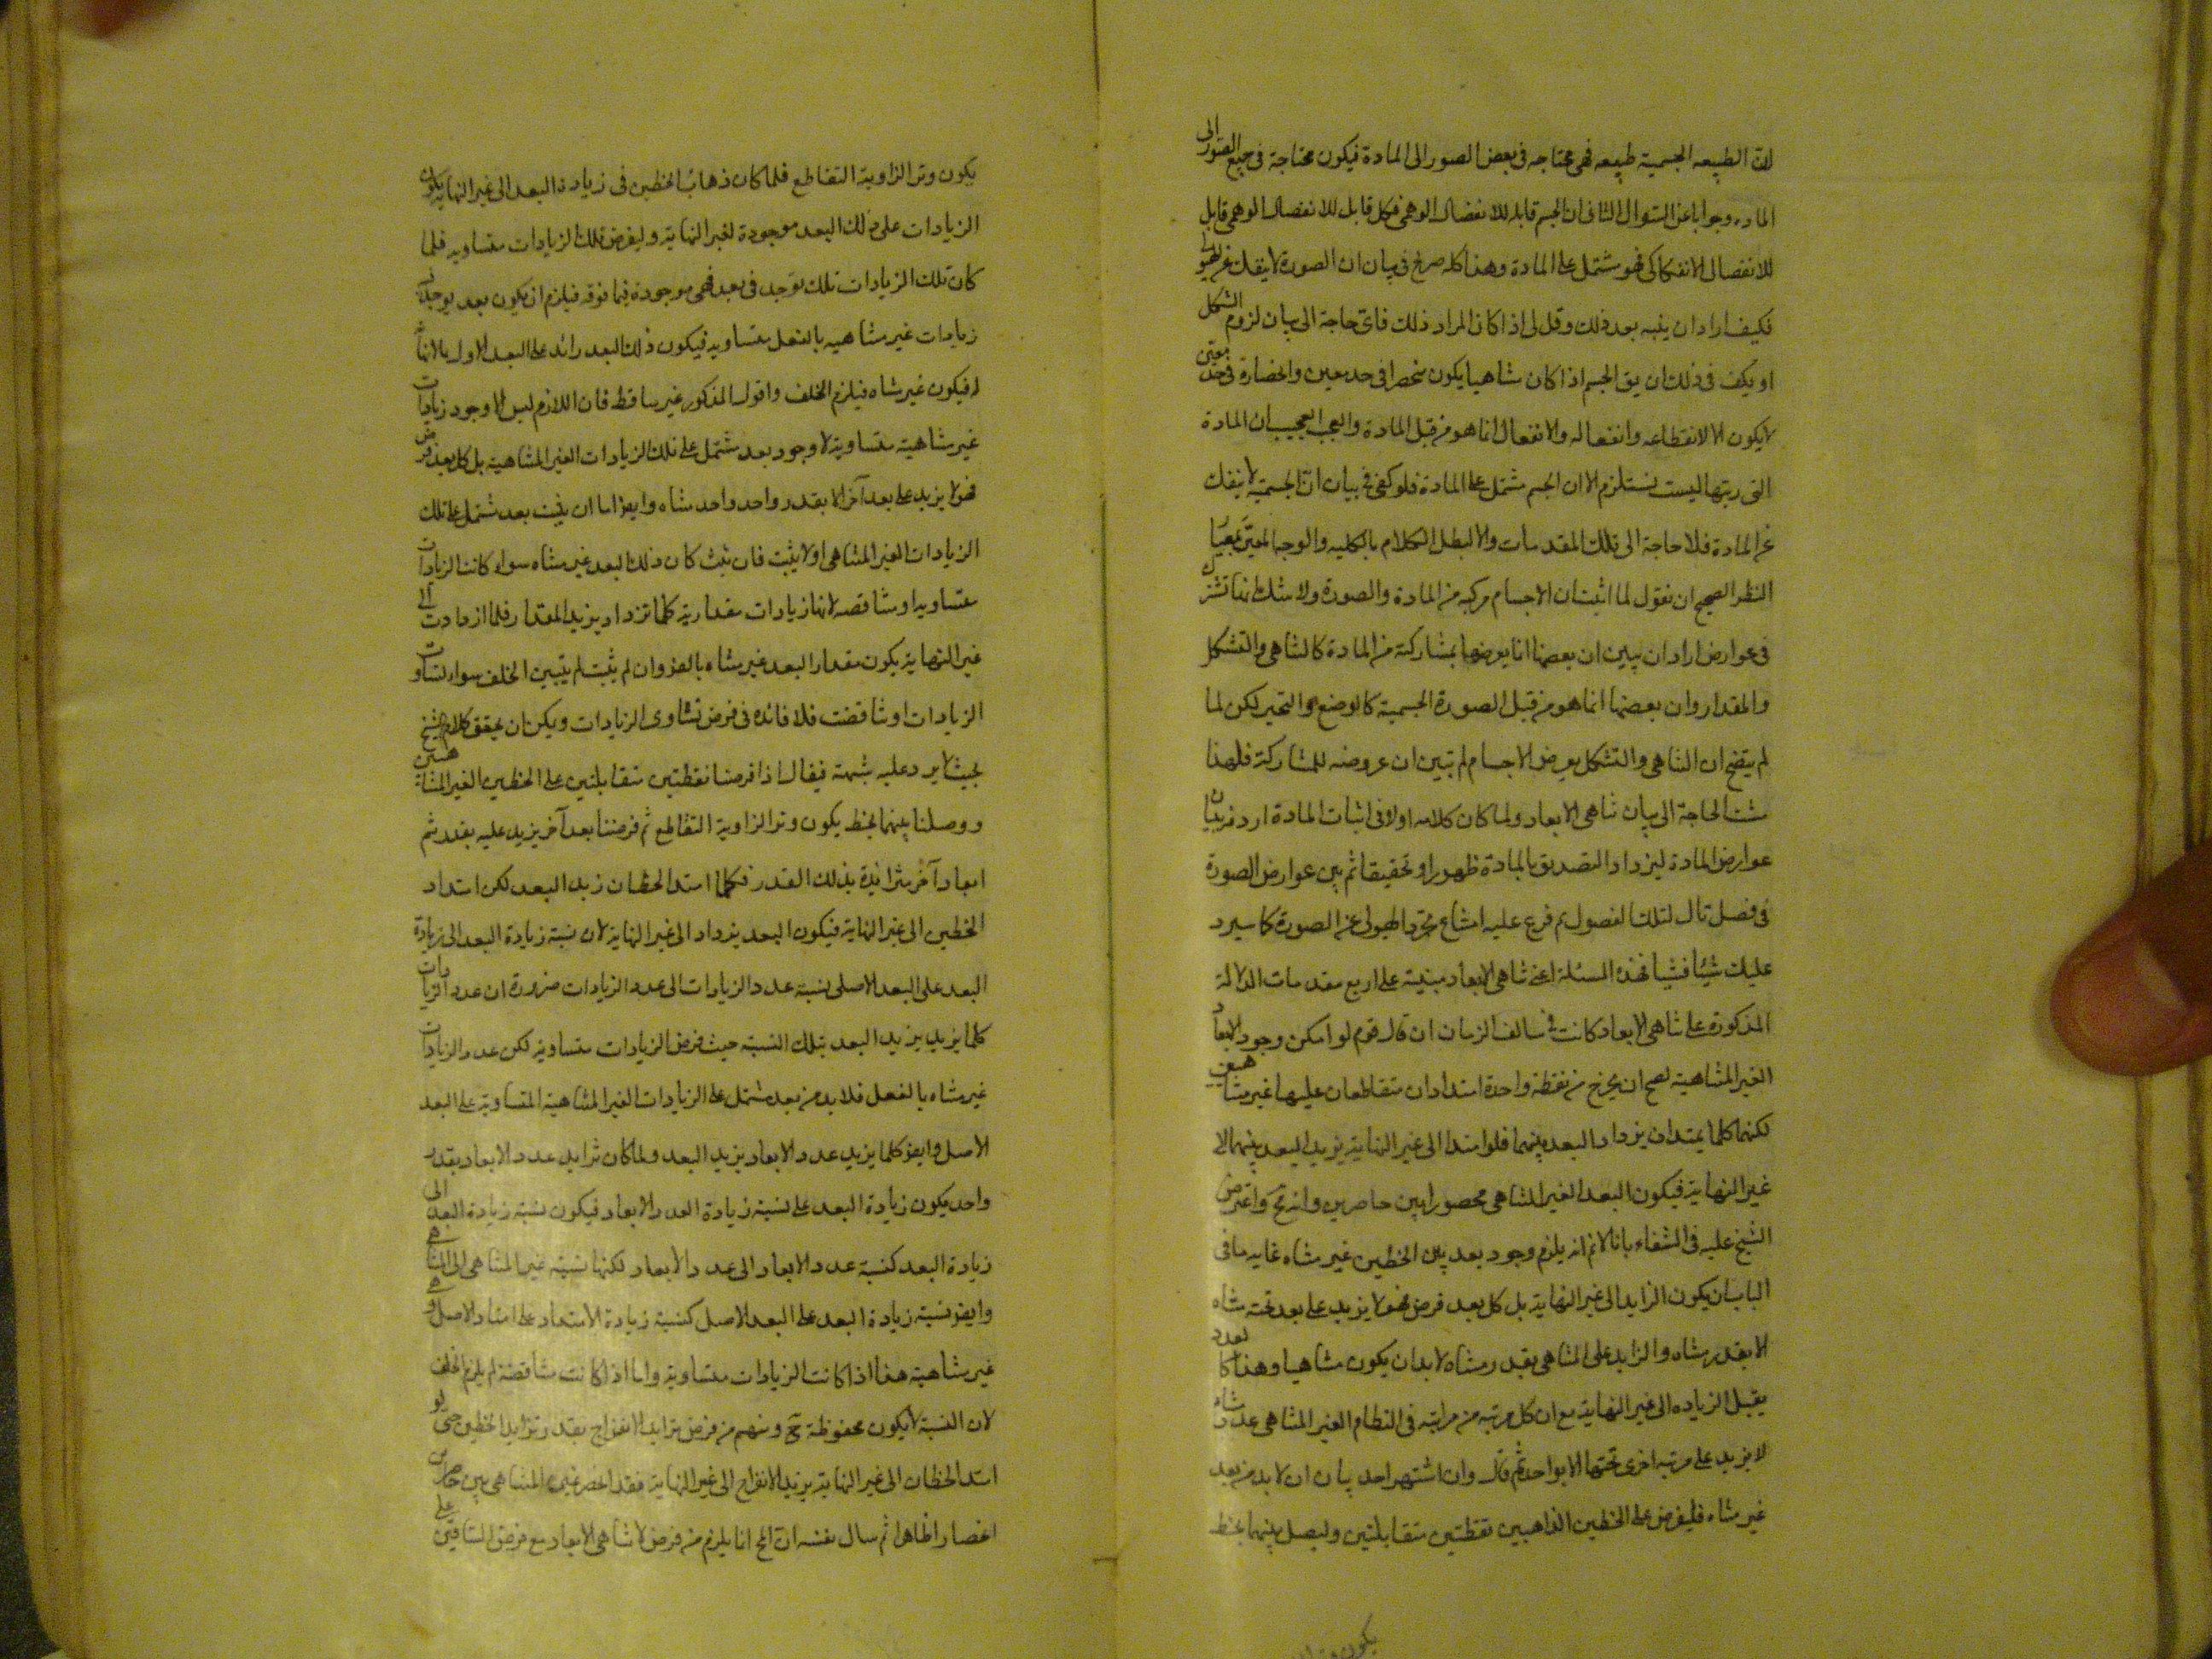 لان الطبيعه الجسمية طبيعه فهى محتاجه فى بعض الصور الى المادة فيكون محتاجة فى جميع الصور الى
الماده وجوابا عن السئوال الثانى ان الجسم قابله للانفصال الوهمى فكل قابل للانفصال الوهمى قابل
للانفصال الانفكاكى فهو مشتمل على المادة وهذا كله صرح فى بيان ان الصورة لا ينفك عن الهيولى
فكيف اراد ان ينبه بعد ذلك وقل لى اذا كان المراد ذلك فاى حاجة الى بيان لزوم الشكل
او يكف فى ذلك ان يق الجسم اذا كان متناهيا يكون منحصرا فى حد معين وانحصاره فى حد معين
لا يكون الا لانقطاعه وانفعاله والانفعال انما هو من قبل المادة والعجب العجيب ان المادة
التى ليست تستلزم الا ان الجسم مشتمل على المادة فلو كفى فى بيان ان الجسمية لا ينفك
عن المادة فلا حاجة الى تلك المقدمات والا لبطل الكلام بالكليه والوجه المعين
النظر الصحيح ان نقول لما اثبت ان الاجسام مركبه من المادة والصورة ولا شك انها تشترك
فى عوارض اراد ان يبين ان بعضها انما يعرضها بمشاركة من المادة كالتناهى والتشكل
والمقدار وان بعضها انما هو من قبل الصورة الجسمية كالوضع والتحيز لكن لما
لم يتضح ان التناهى والتشكل يعرض الاجسام لم يتبين ان عروضه للمشاركة فلهذا
مست الحاجة الى بيان تناهى الابعاد ولما كان كلامه اولا فى اثبات المادة اردف بيان
عوارض المادة ليزداد التصديق بالمادة ظهورا وتحقيقا ثم بين عوارض الصورة
فى فصل تال لتلك الفصول ثم فرع عليه امتناع تجرد الهيولى عن الصورة كما سيرد
عليك شيئا فشيا فهذه المسئلة اعنى تناهى الابعاد مبنية على اربع مقدمات الدلالة
المذكورة على تناهى الابعاد كانت فى سالف الزمان ان قال قوم لو امكن وجود الابعاد
الغير المتناهية لصح ان يخرج من نقطة واحدة امتدادان متقاطعان عليها غير متناهيين
لكنهما كلما يمتدان يزداد البعد بينهما فلو امتدا الى غير النهاية يزيد البعد بينهما الى
غير النهاية فيكون البعد الغير المتناهى محصورا بين حاصرين وانه مح واعترض
الشيخ عليه فى الشفاء بانا لانم انه يلزم وجود بعد بين الخطين غير متناه غايه ما فى
الباب ان يكون الزايد الى غير النهاية بل كل بعد فرض فهو لا يزيد على بعد تحته متناه
الا بقدر متناه والزايد على المتناهى بقدر متناه لابد ان يكون متناهيا وهذا كالعدد
يقبل الزياده الى غير النهاية مع ان كل مرتبه من مراتبه فى النظام الغير المتناهى عدد متناه
لا يزيد على مرتبه اخرى تحتها الا بواحد ثم قال وان اشتهر احد بيان ان لابد من بعد
غير متناه فليفرض على الخطين الذاهبين نقطتين متقابلتين وليصل بينهما بخط
يكون وتر
يكون وتر الزاوية التقاطع فلما كان ذهاب الخطين فى زيادة البعد الى غير النهاية يكون
الزيادات على ذلك البعد موجودة لغير النهاية وليفرض تلك الزيادات متساويه فلما
كان تلك الزيادات تلك توجد فى بعد فهى موجودة فيما فوقه فيلزم ان يكون بعد يوجد فيه
زيادات غير متناهيه بالفعل متساويه فيكون ذلك البعد زائد على البعد الاول بالانها
له فيكون غير متناه فيلزم الخلف واقول المذكور غير ساقط فان اللازم ليس الا وجود زيادات
غير متناهية متساوية لا وجود بعد مشتمل على تلك الزيادات الغير المتناهية بل كل بعد فرض
فهو لا يزيد على بعد آخر الا بقدر واحد واحد متناه وايضا اما ان يثبت بعد مشتمل على تلك
الزيادات الغير المتناهى او لا يثبت فان ثبت كان ذلك البعد غير متناه سواء كانت الزيادات
متساويه او متناقصه لانها زيادات مقدارية كلما تزداد يزيد المقدار فلما ازدادت الى
غير النهاية يكون مقدار البعد غير متناه بالضر وان لم يثبت لم يتبين الخلف سواء تساوت
الزيادات او تناقضت فلا فائده فى فرض تساوى الزيادات ويمكن ان يحقق كلام الشيخ
بحيث لا يرد عليه شبهة فيقال اذا فرضنا نقطتين متقابلتين على الخطين الغير المتناهيين
ووصلنا بينهما بخط يكون وتر الزاوية التقاطع ثم فرضنا بعدا آخر يزيد عليه بقدر ثم
ابعاد آخر متزايدة بذلك القدر فكلما امتد الخطان زيد البعد لكن امتداد
الخطين الى غير النهاية فيكون البعد يزداد الى غير النهاية لان نسبة زيادة البعد الى زيادة
البعد على البعد الاصلى نسبة عدد الزيادات الى عدد الزيادات ضرورة ان عدد الزيادات
كلما يزيد يزيد البعد بتلك النسبة حيث فرض الزيادات متساوية لكن عدد الزيادات
غير متناه بالفعل فلابد من بعد مشتمل على الزيادات الغير المتناهية المتساوية على البعد
الاصل وايضا كلما يزيد عدد الابعاد يزيد البعد ولما كان تزايد عدد الابعاد بقدر
واحد يكون زيادة البعد على نسبة زيادة العدد الابعاد فيكون نسبة زيادة البعد الى
زيادة البعد كنسبة عدد الابعاد الى عدد الابعاد لكنها نسبة غير المتناهى الى المتناهى
وايضا نسبة زيادة البعد على البعد الاصل كنسبة زيادة الامتداد على امتداد الاصل وهى
غير متناهية هذا اذا كانت الزيادات متساوية واما اذا كانت متناقصة لم يلزم الخلف
لان النسبة لا يكون محفوظة ح ومنهم من فرض تزايد الانفراج بقدر تزايد الخطين حتى لو
امتد الخطان الى غير النهاية يزيد الانفراج الى غير النهاية فقد انحصر غير المتناهى بين حاصرين
انحصارا ظاهرا ثم سال نفسه ان المح انما يلزم من فرض لا تناهى الابعاد مع فرض الساقين على